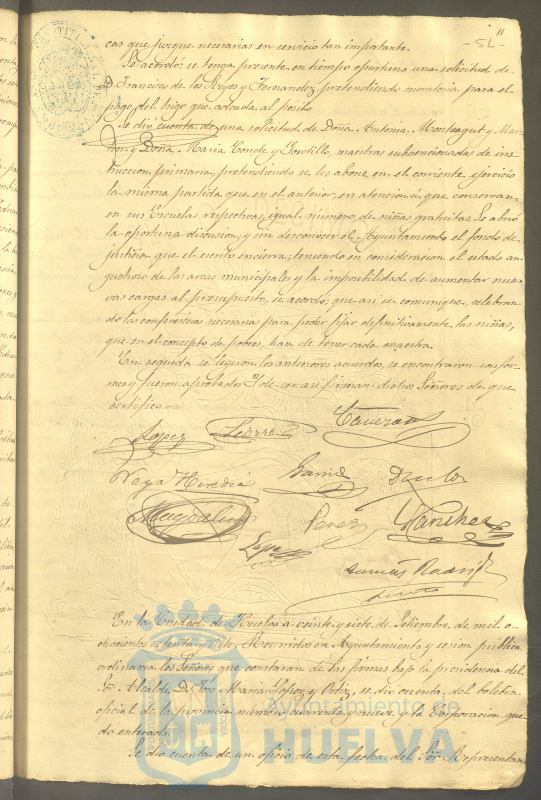 11
- 5L -
cas que juzgue necesarias en servicio tan importante.
Se acordó; se tenga presente en tiempo oportuno una solicitud de
D. Francisco de los Reyes y Fernandez pretendiendo moratoria para el
pago del trigo que adeuda al pósito.
Se dio cuenta de una solicitud de Doña Antonia y Mar-
y Doña Maria Conde y Gordillo, maestras subvencionadas de ins-
truccion primaria, pretendiendo se les abone en el corriente ejercicio
la misma partida que en el anterior, en atencion á que conservan
en sus Escuelas respectivas, igual número de niñas gratuitas. Se abrió
la oportuna discusion, y sin desconocer el Ayuntamiento el fondo de
justicia que el escrito encierra; teniendo en consideracion el estado an-
gustioso de las arcas municipales y la imposibilidad de aumentar nue-
vas cargas al presupuesto, se acordó; que asi se comunique, celebran-
do las conferencias necesarias para poder fijar definitivamente las niñas,
que en el concepto de pobres, han de tener cada maestra.
En seguida se leyeron los anteriores acuerdos, se encontraron confor-
mes y fueron aprobados. Y de ser asi firman dichos Señores de que
certifico.
Lopez
Vega Heredia Garcia
Magdaleno Perez Sanchez
Lopez
En la Ciudad de Huelva a veinte y siete de Setiembre de mil o-
chocientos setenta y siete. Reunidos en Ayuntamiento y sesion pública
ordinaria los Señores que constaran de las firmas bajo la presidencia del
Sor. Alcalde D. José Maria Lopez y Ortiz, se dio cuenta del boletin
oficial de la provincia número cuarenta y nueve, y la Corporacion que-
do enterada.
Se dio cuenta de un oficio de esta fecha del Sor. Representan-
Ayuntamiento de
HUELVA